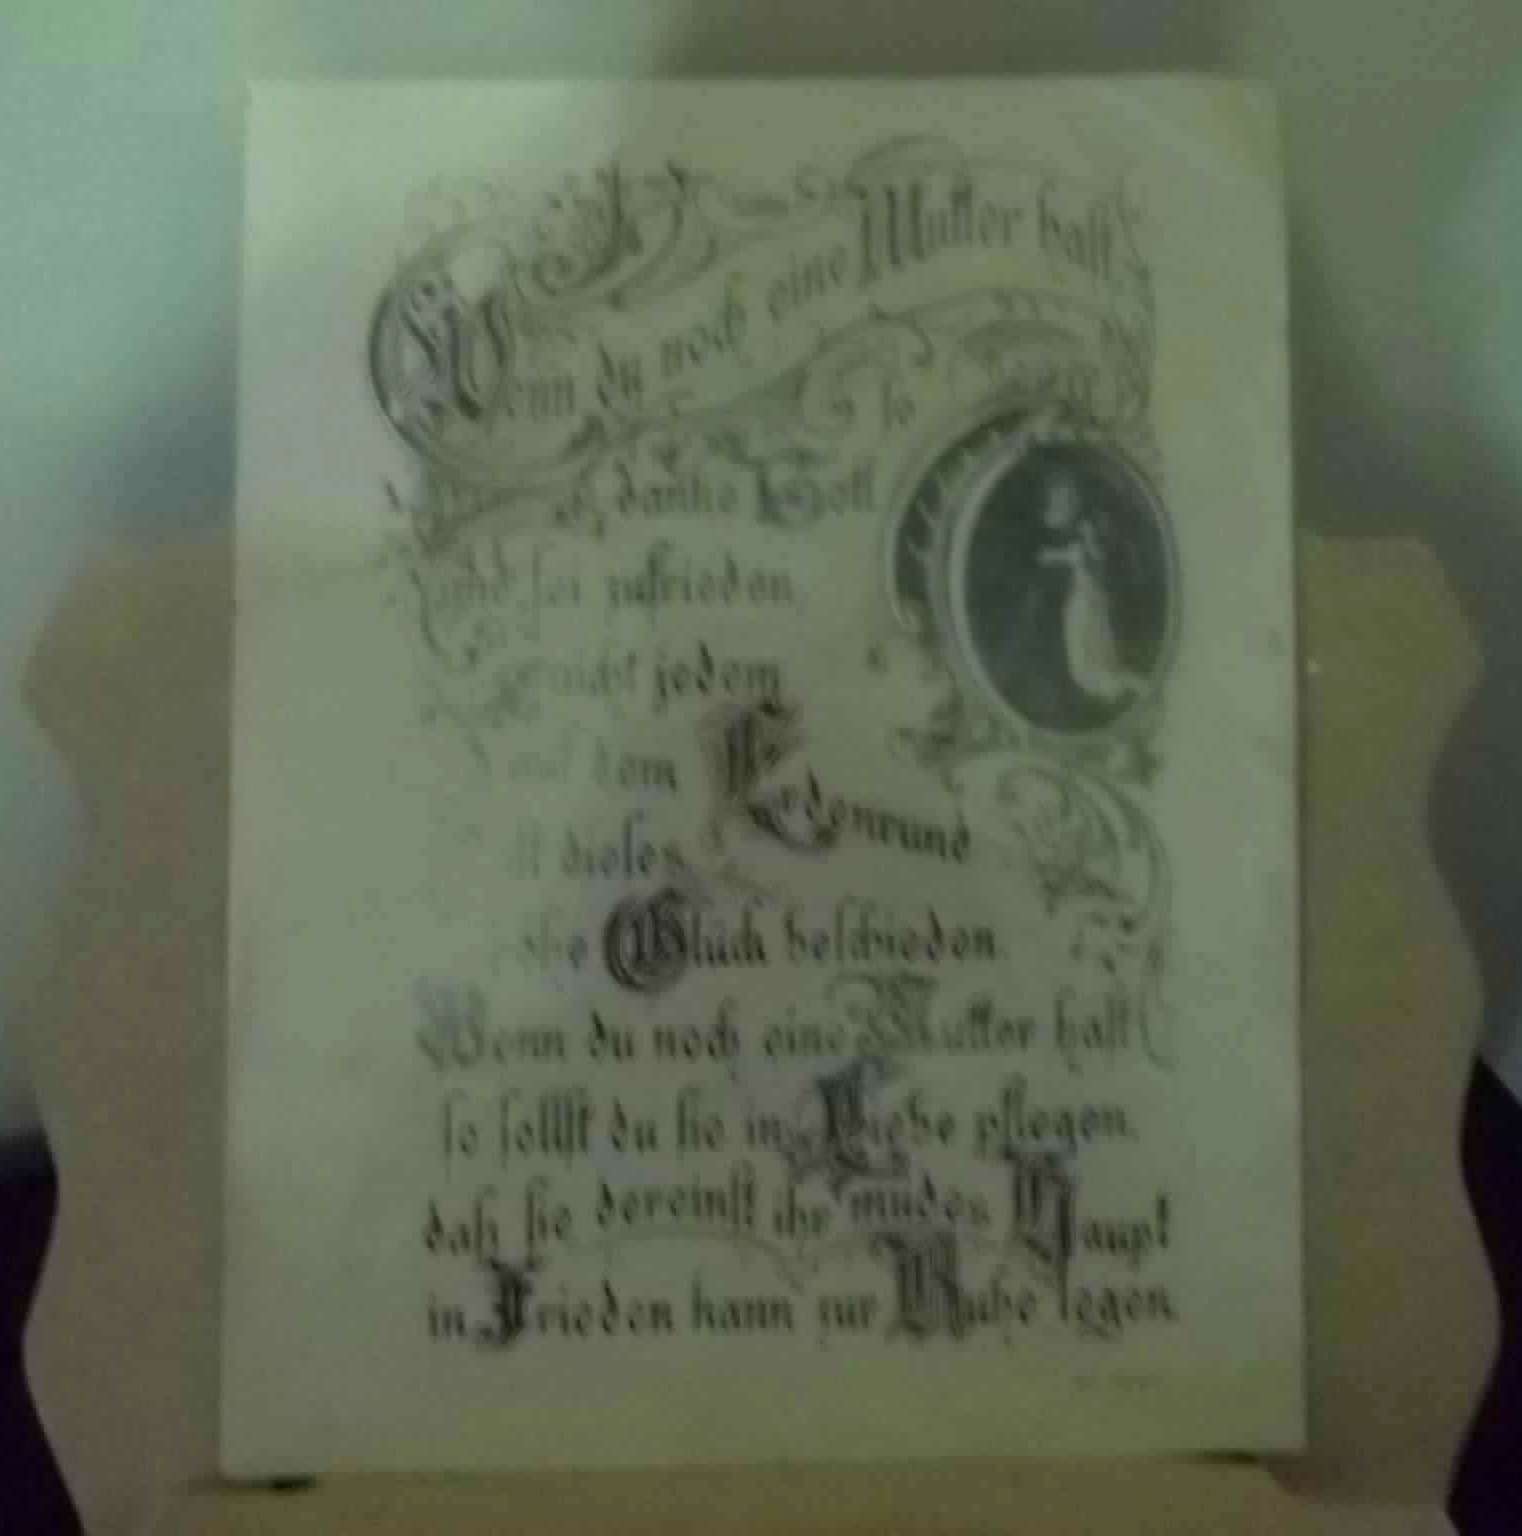 Wenn du noch eine Mutter hast
so
danke Gott
und sei zufrieden
nicht jedem
auf dem Erdenrund
ist dieses
hohe Glück beschieden.
Wenn du noch eine Mutter hast
so sollst du sie in Liebe pflegen.
daß sie dereinst ihr müdes Haupt
in Frieden kann zur Ruhe legen.